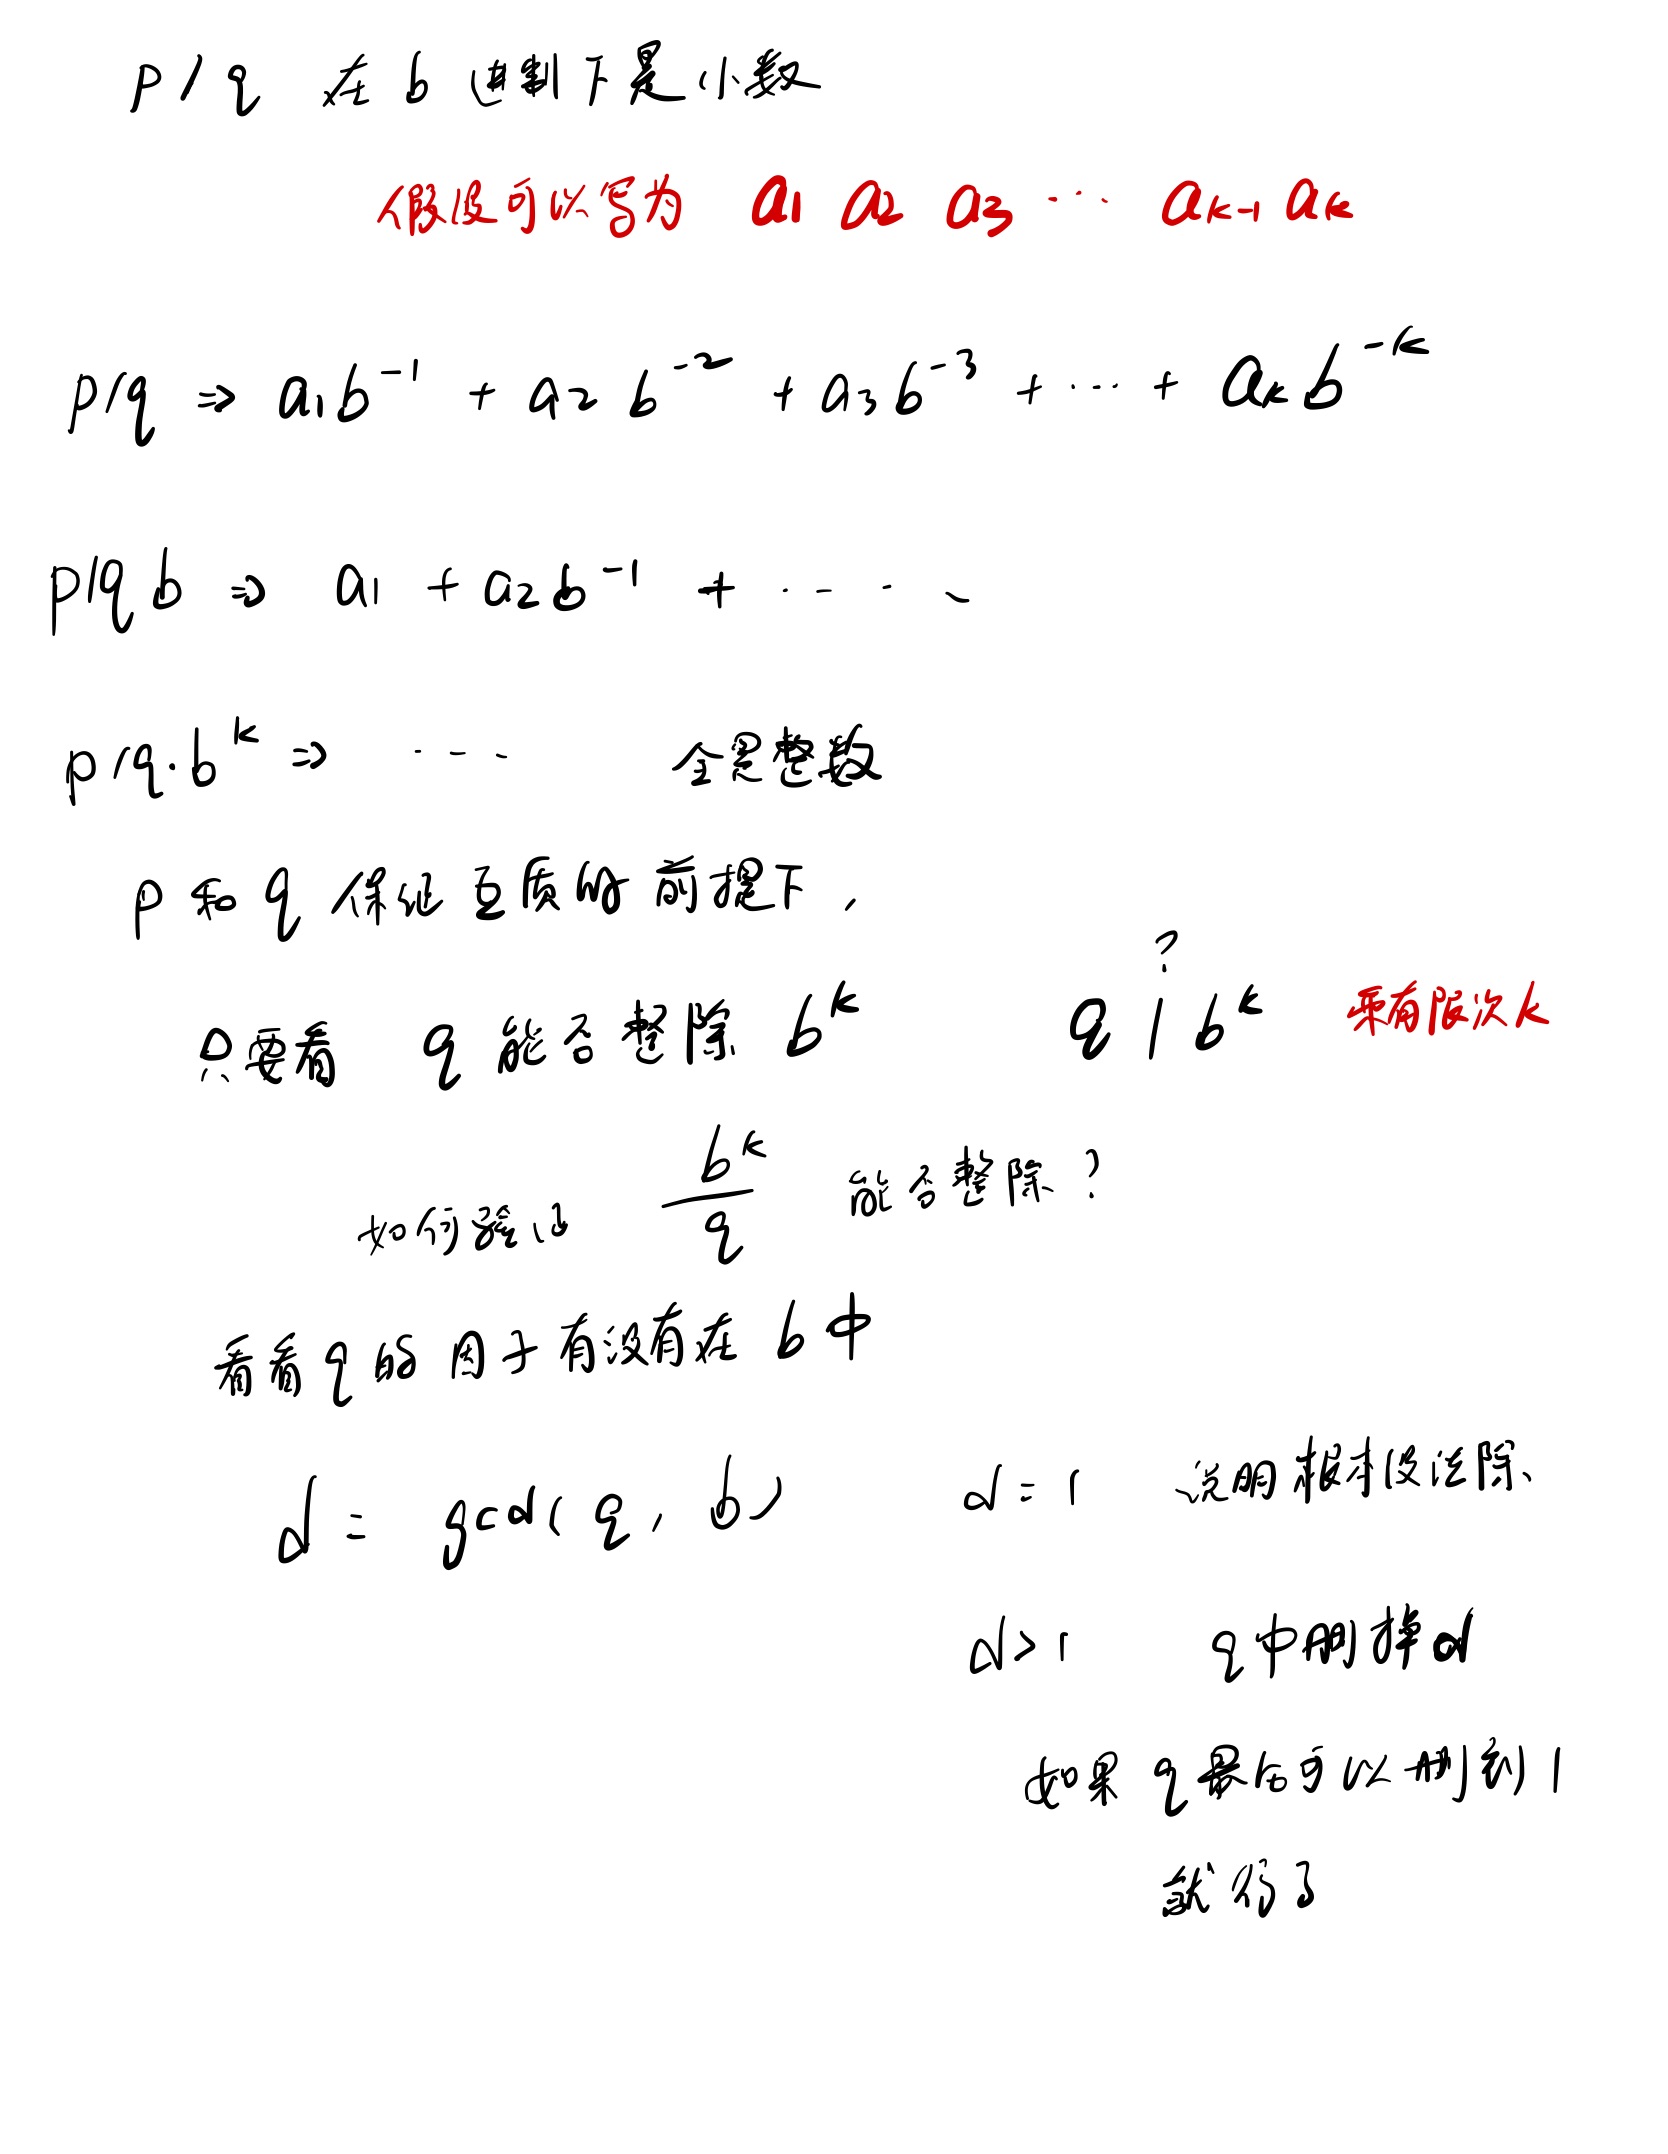 p/q 在 b 进制下是小数
假设可以写为 a1 a2 a3 ... ak-1 ak
p/q ⇒ a1b^-1 + a2 b^-2 + a3b^-3 + ... + ak b^-k
p/q b ⇒ a1 + a2b^-1 + ....
p/q·b^k ⇒ ... 全是整数
p 和 q 保证互质的前提下,
只要看 q 能否整除 b^k q | b^k ? 乘有限次k
如何验证 b^k/q 能否整除?
看看q的因子有没有在b中
d = gcd(q, b) d=1 说明根本没法除、
d>1 q中删掉d
如果 q最后可以删到1
就行了